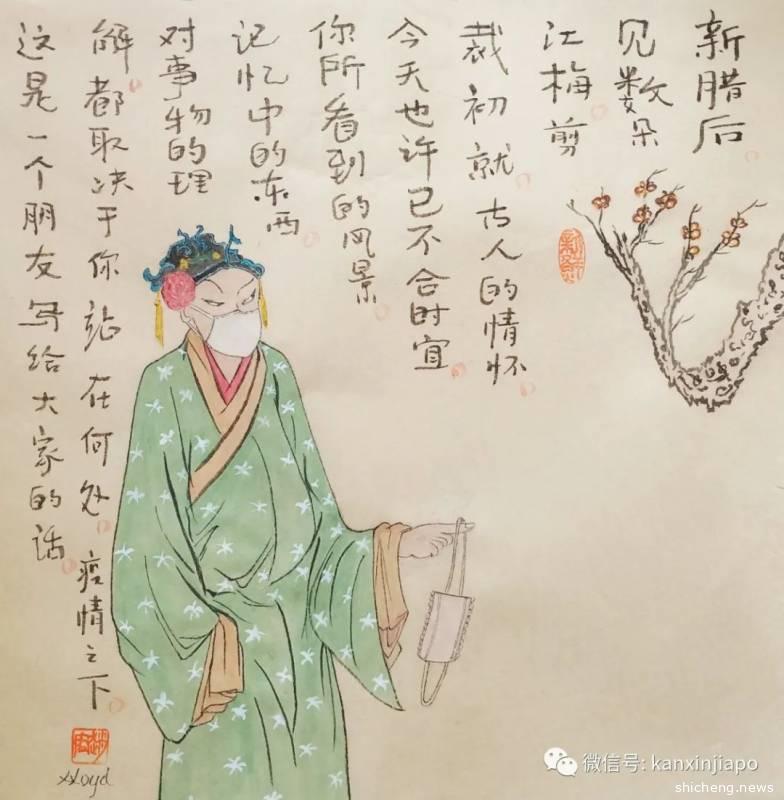 新腊后。
见数朵
江梅。剪
裁初就。古人的情怀。
今天也许已不合时宜。
你所看到的风景。
记忆中的东西。
对事物的理
解。都取决于你站在何处。疫情之下。
这是一个朋友写给大家的话。
微信号: kanxinjiapo
shicheng.news